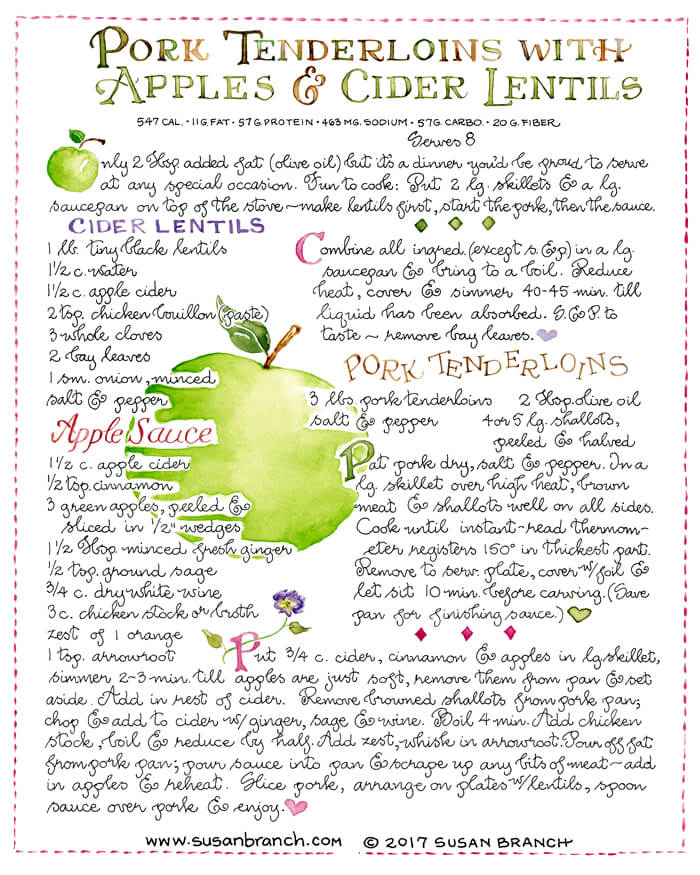 PORK TENDERLOINS WITH
APPLES & CIDER LENTILS
547 CAL. • 11 G. FAT • 57 G. PROTEIN • 463 MG. SODIUM • 57 G. CARBO. • 20 G. FIBER
Serves 8
Only 2 Tbsp. added fat (olive oil) but it's a dinner you'd be proud to serve
at any special occasion. Fun to cook: Put 2 lg. skillets & a lg.
saucepan on top of the stove ~ make lentils first, start the pork, then the sauce.
CIDER LENTILS
1 lb. tiny black lentils
1 1/2 c. water
1 1/2 c. apple cider
2 tsp. chicken bouillon (paste)
3 whole cloves
2 bay leaves
1 sm. onion, minced
salt & pepper
Combine all ingred. (except s. & p) in a lg.
saucepan & bring to a boil. Reduce
heat, cover & simmer 40-45 min. till
liquid has been absorbed. S. & P. to
taste ~ remove bay leaves.
PORK TENDERLOINS
3 lbs. pork tenderloins 2 Tbsp. olive oil
salt & pepper 4 or 5 lg. shallots,
peeled & halved
Pat pork dry, salt & pepper. In a
lg. skillet over high heat, brown
meat & shallots well on all sides.
Cook until instant-read thermom-
eter registers 150° in thickest part.
Remove to serv. plate, cover w/foil &
let sit 10 min. before carving. (Save
pan for finishing sauce.)
Apple Sauce
1 1/2 c. apple cider
1/2 tsp. cinnamon
3 green apples, peeled &
sliced in 1/2" wedges
1 1/2 Tbsp. minced fresh ginger
1/2 tsp. ground sage
3/4 c. dry white wine
3 c. chicken stock or broth
zest of 1 orange
1 tsp. arrowroot
Put 3/4 c. cider, cinnamon & apples in lg. skillet,
simmer 2-3 min. till apples are just soft, remove them from pan & set
aside. Add in rest of cider. Remove browned shallots from pork pan;
chop & add to cider w/ ginger, sage & wine. Boil 4 min. Add chicken
stock, boil & reduce by half. Add zest, whisk in arrowroot. Pour off fat
from pork pan; pour sauce into pan & scrape up any bits of meat ~ add
in apples & reheat. Slice pork, arrange on plates w/lentils, spoon
sauce over pork & enjoy.
www.susanbranch.com © 2017 SUSAN BRANCH